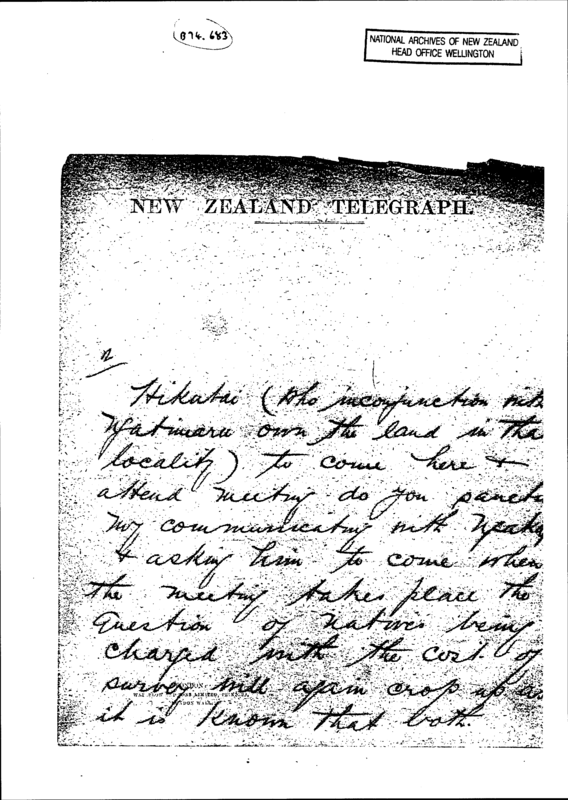 B74.683
NATIONAL ARCHIVES OF NEW ZEALAND
HEAD OFFICE WELLINGTON
NEW ZEALAND TELEGRAPH.
2
Hikutai (who inconjunction with
Ngatimaru own the land in tha
locality) to come here &
attend meeting do you sanct
my communicating with
& asking him to come when
the meeting takes place the
Question of Natives being
charged with the cost of
survey will again crop up as
it is known that both